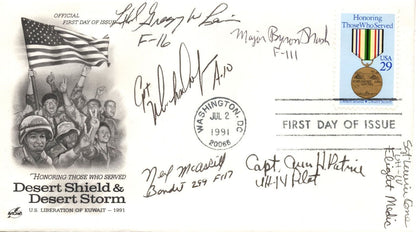 OFFICIAL
FIRST DAY OF ISSUE
F-16
Major Byron
F-111
Honoring
Those Who Served
USA
29
Capt
A-10
WASHINGTON, DC
JUL 2
1991
20066
FIRST DAY OF ISSUE
"HONORING THOSE WHO SERVED
Desert Shield &
Desert Storm
U.S. LIBERATION OF KUWAIT – 1991
Bandit 254 F117
Capt. Ann H. Patrie
UH-1V Pilot
Sgt
UH-1V
Flight Medic